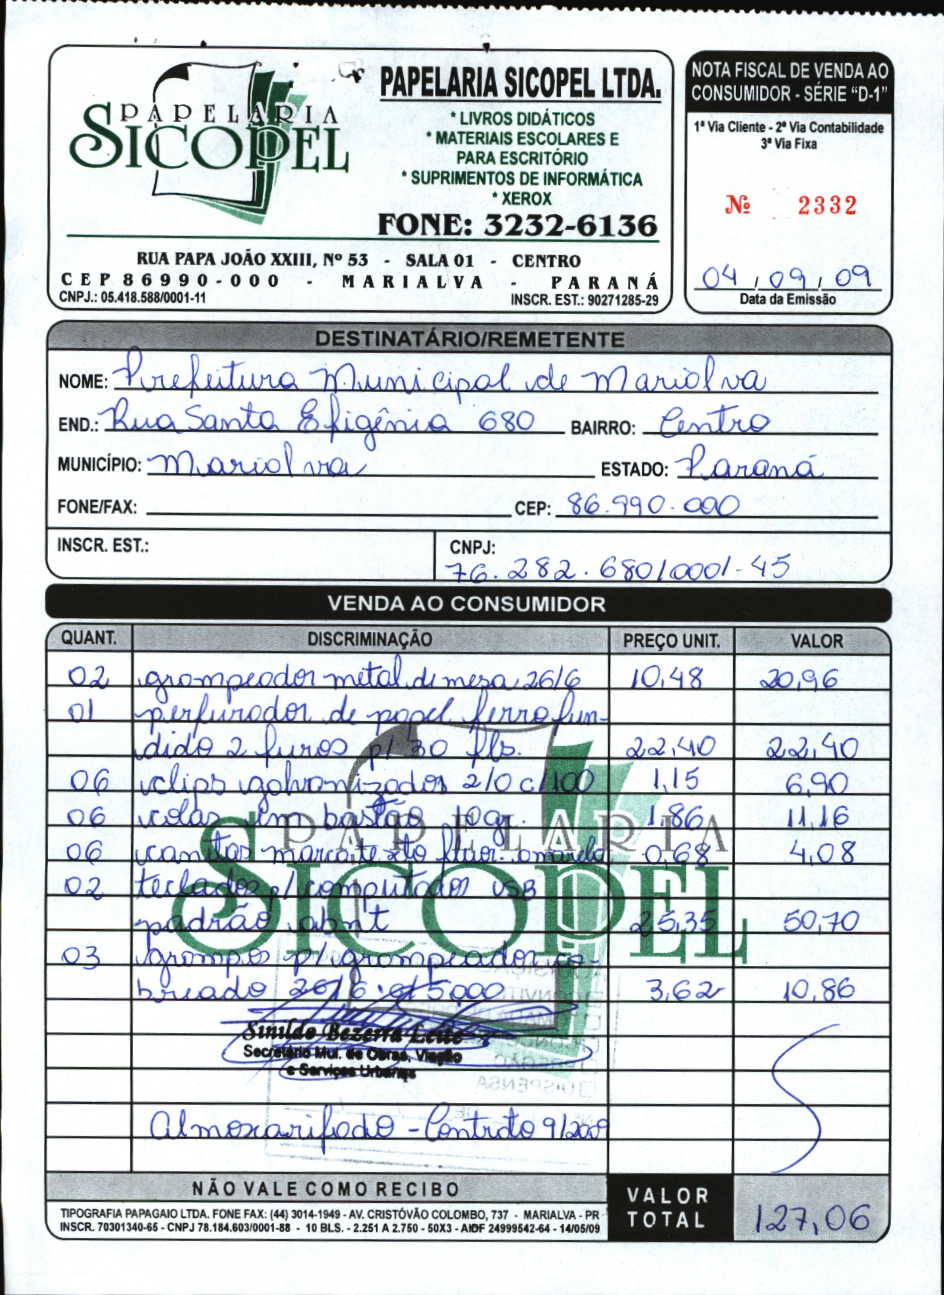 PAPELARIA
SICOPEL
PAPELARIA SICOPEL LTDA.
* LIVROS DIDÁTICOS
* MATERIAIS ESCOLARES E
PARA ESCRITÓRIO
* SUPRIMENTOS DE INFORMÁTICA
* XEROX
FONE: 3232-6136
RUA PAPA JOÃO XXIII, Nº 53 - SALA 01 - CENTRO
CEP 86990-000 - MARIALVA - PARANÁ
CNPJ.: 05.418.588/0001-11 INSCR. EST.: 90271285-29
NOTA FISCAL DE VENDA AO
CONSUMIDOR - SÉRIE "D-1"
1ª Via Cliente - 2ª Via Contabilidade
3ª Via Fixa
Nº 2332
04 / 09 / 09
Data da Emissão
DESTINATÁRIO/REMETENTE
NOME: Prefeitura Municipal de Marialva
END.: Rua Santa Efigênia 680 BAIRRO: Centro
MUNICÍPIO: Marialva ESTADO: Paraná
FONE/FAX: CEP: 86.990.000
INSCR. EST.: CNPJ:
76.282.680/0001-45
VENDA AO CONSUMIDOR
QUANT. DISCRIMINAÇÃO PREÇO UNIT. VALOR
02 grampeador metal de mesa 26/6 10,48 20,96
01 perfurador de papel ferro fun-
dido 2 furos p/ 30 fls. 22,40 22,40
06 clips galvanizados 2/0 c/100 1,15 6,90
06 colas em bastão 10gr. 1,86 11,16
06 canetas marca texto fluor. amarela 0,68 4,08
02 teclados p/ computador USB
padrão abnt 25,35 50,70
03 grampo p/ grampeador co-
breado 26/6 c/5000 3,62 10,86
PAPELARIA
SICOPEL
Sinildo Bezerra Leite
Secretário Mul. de Obras, Viação
e Serviços Urbanos
DISPENSA
Almoxarifado - Contrato 9/2009
NÃO VALE COMO RECIBO
TIPOGRAFIA PAPAGAIO LTDA. FONE FAX: (44) 3014-1949 - AV. CRISTÓVÃO COLOMBO, 737 - MARIALVA - PR
INSCR. 70301340-65 - CNPJ 78.184.603/0001-88 - 10 BLS. - 2.251 A 2.750 - 50X3 - AIDF 24999542-64 - 14/05/09
VALOR
TOTAL
127,06